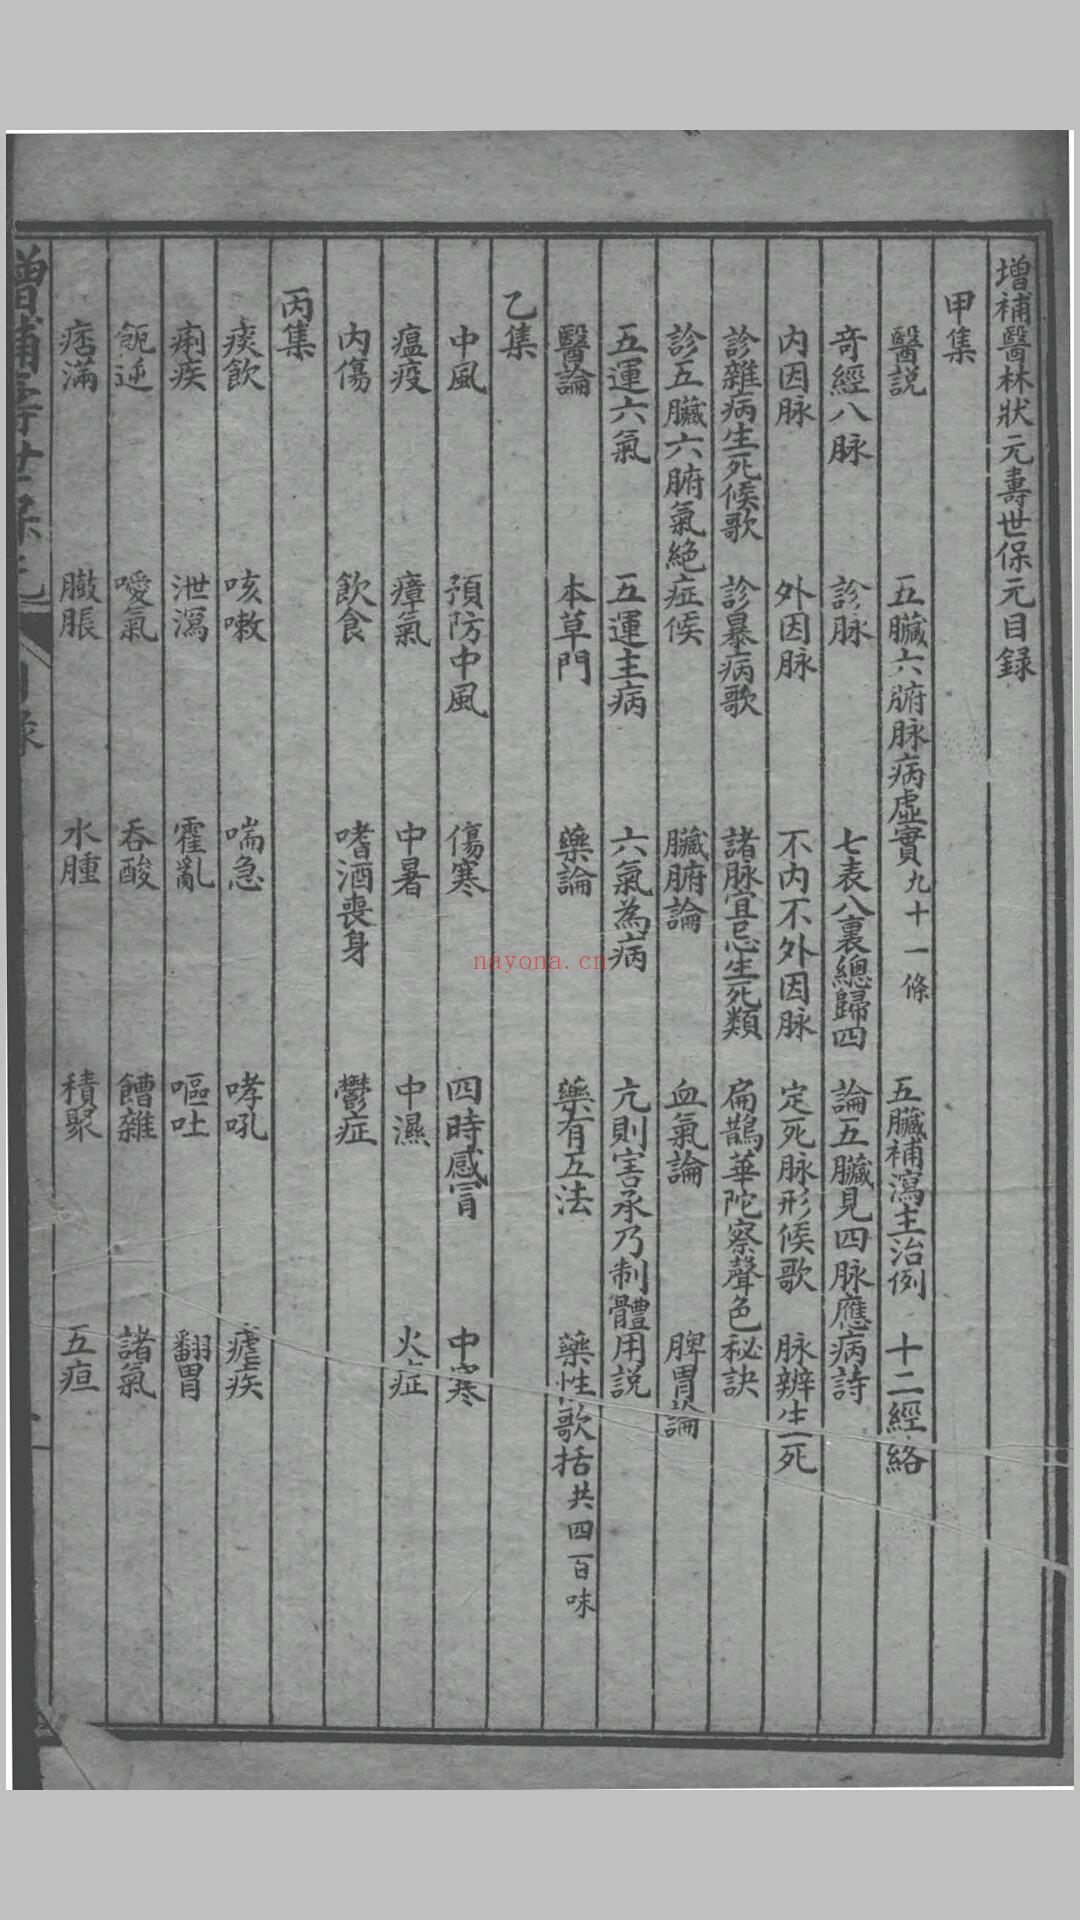 增補醫林狀元壽世保元目録
甲集
醫説 五臟六腑脉病虛實九十一條 五臟補瀉主治例 十二經絡
奇經八脉 診脉 七表八裏總歸四 論五臟見四脉應病詩
内因脉 外因脉 不内不外因脉 定死脉形候歌 脉辨生死
診雜病生死候歌 診暴病歌 諸脉宜忌生死類 扁鵲華陀察聲色秘訣
診五臟六腑氣絶症候 臟腑論 血氣論 脾胃論
五運六氣 五運主病 六氣為病 亢則害承乃制體用説
醫論 本草門 藥論 藥有五法 藥性歌括共四百味
乙集
中風 預防中風 傷寒 四時感冒 中寒
瘟疫 瘴氣 中暑 中濕 火症
内傷 飲食 嗜酒喪身 鬱症
丙集
痰飲 咳嗽 喘急 哮吼 瘧疾
痢疾 泄瀉 霍亂 嘔吐 翻胃
呃逆 噯氣 吞酸 饐雜 諸氣
痞滿 臌脹 水腫 積聚 五疸
增補壽世保元 目録
nayona.cn